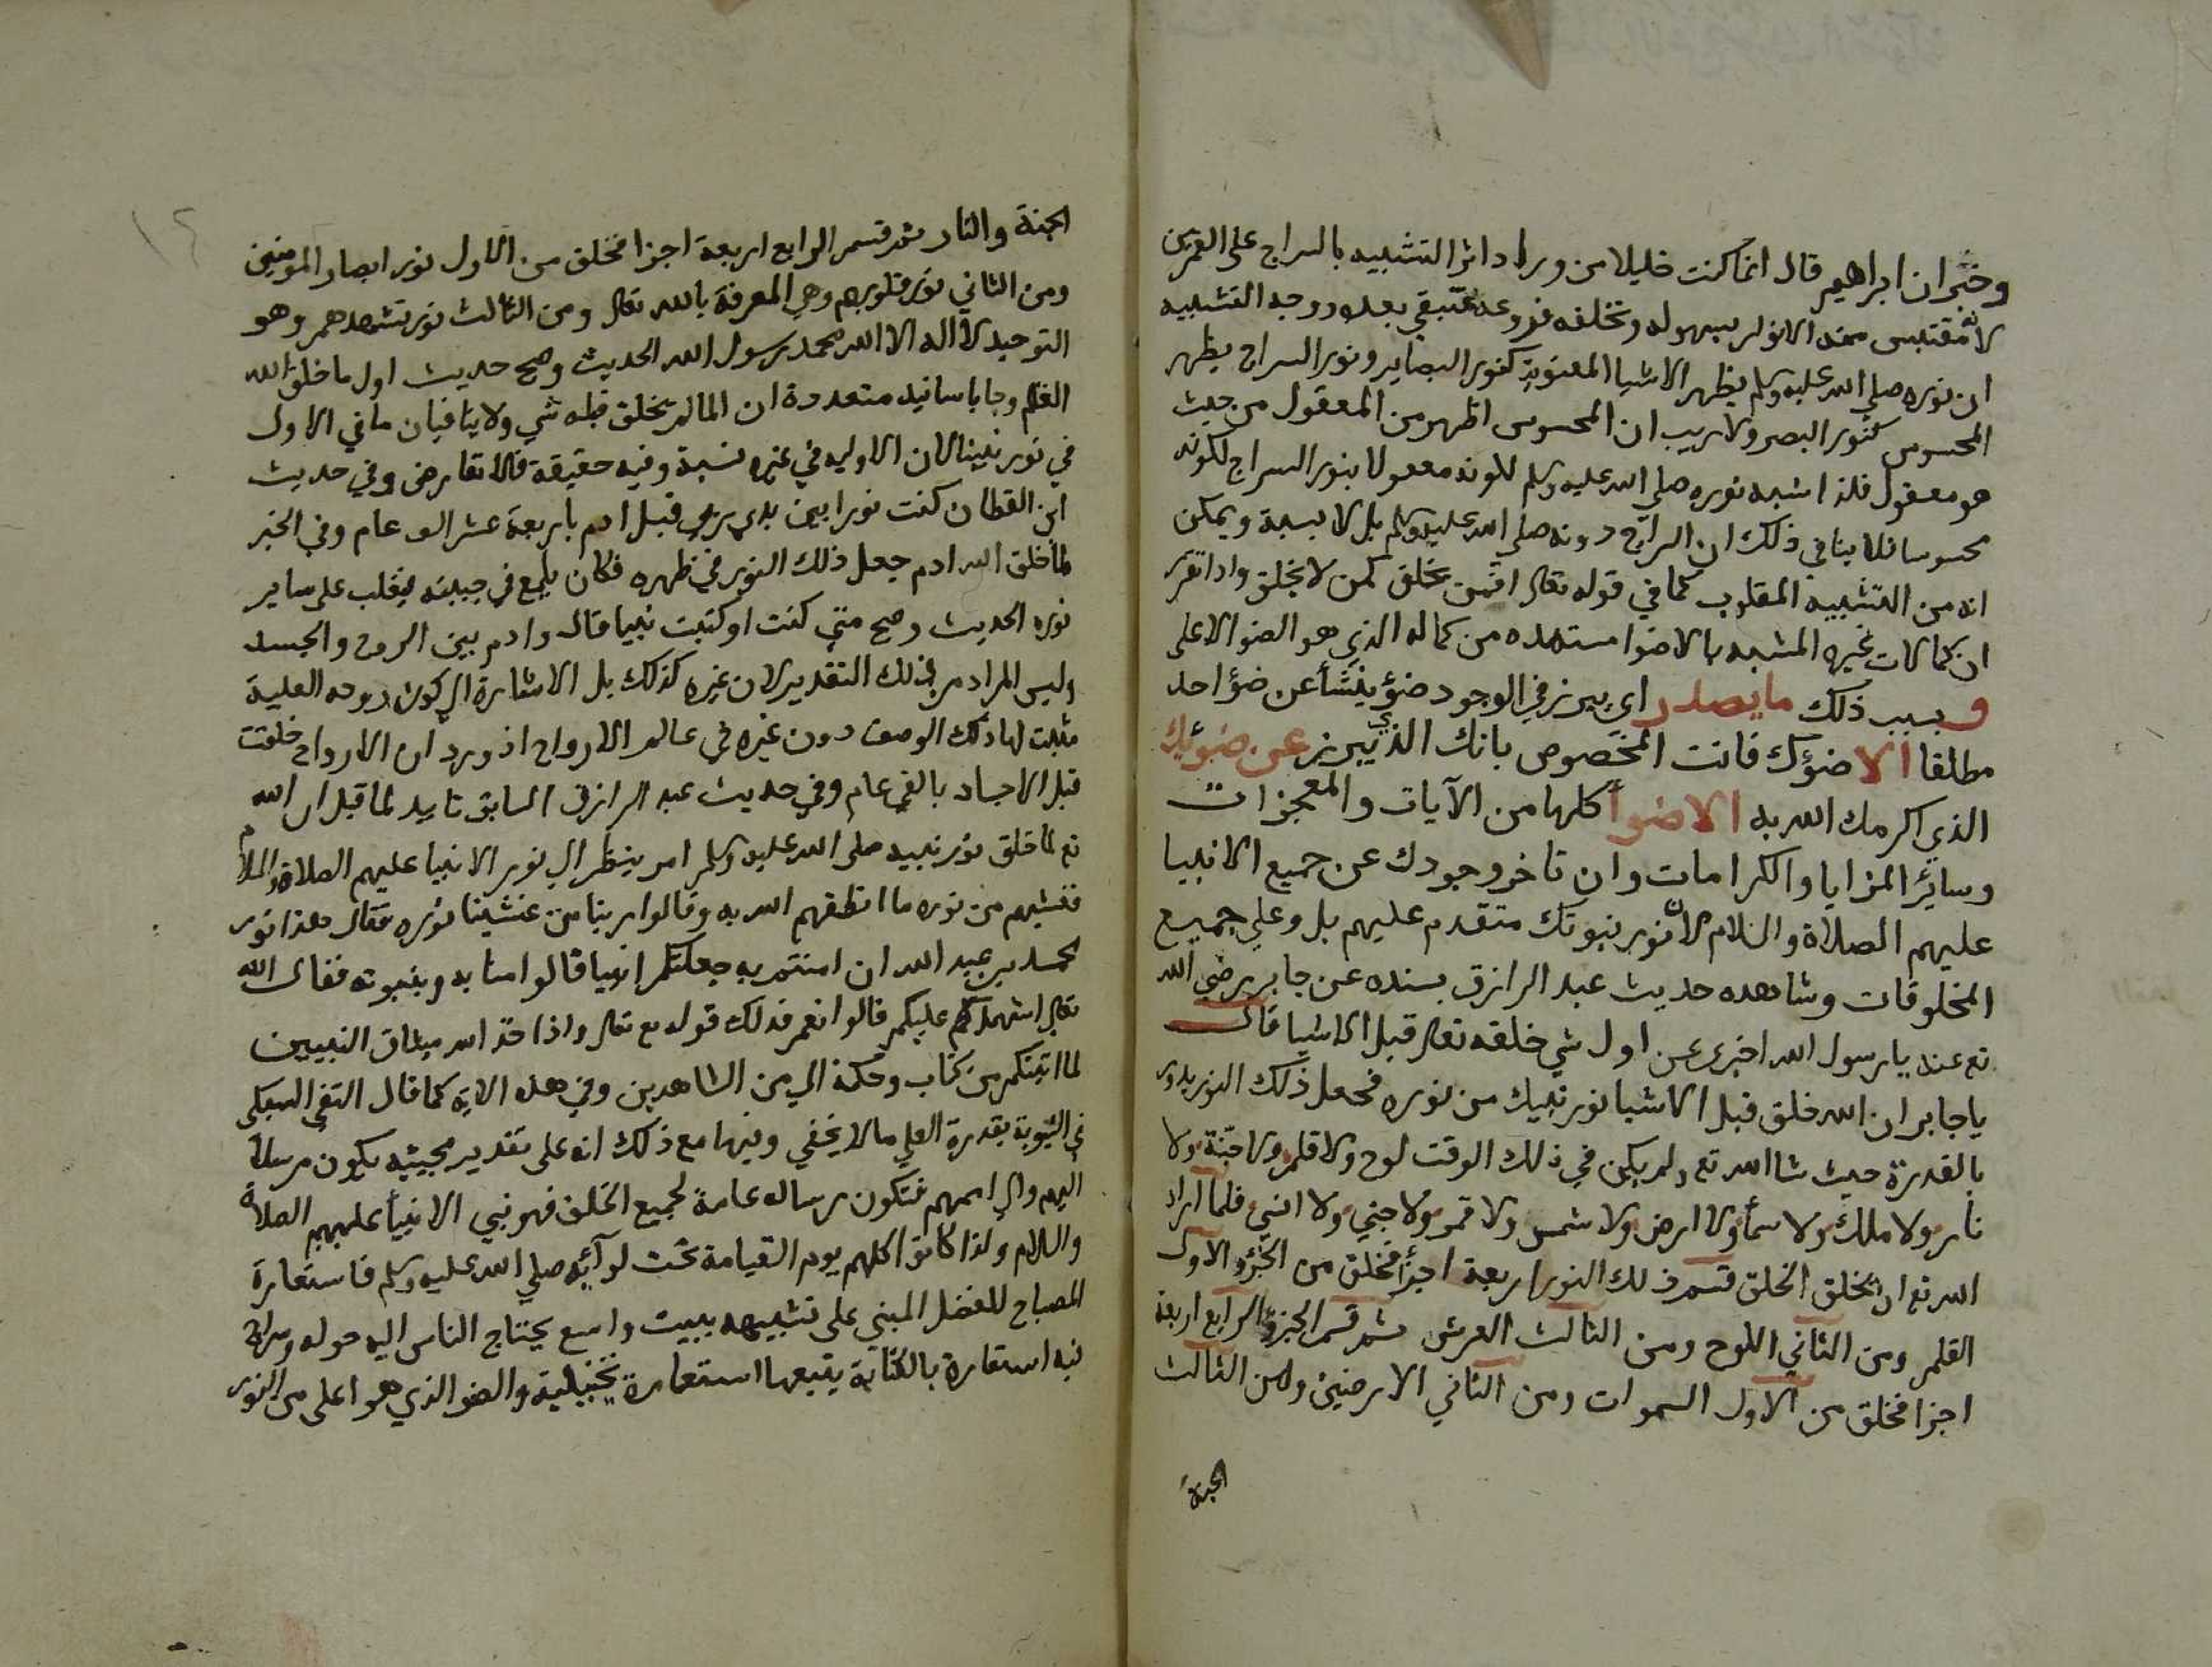 وخبر ان ابراهيم قال انما كنت خليلا من ورا ورا واثر التشبيه بالسراج على القمرين
لانه مقتبس منه الانوار بسهولة وتخلفه فروعه فتبقي بعده ووجه التشبيه
ان نوره صلي الله عليه وسلم يظهر الاشيا المعنوية كنور البصاير ونور السراج يظهر
المحسوس كنور البصر ولا ريب ان المحسوس اظهر من المعقول من حيث
هو معقول فلذا شبه نوره صلي الله عليه وسلم لكونه معقولا بنور السراج لكونه
محسوسا فلا ينافي ذلك ان السراج دونه صلي الله عليه وسلم بل لا نسبة ويمكن
انه من التشبيه المقلوب كما في قوله تعالى افمن يخلق كمن لا يخلق واذا تقرر
ان كمالات غيره المشبه بالاضوا مستمدة من كماله الذي هو الضو الاعلى
وبسبب ذلك ما يصدر اي يبرز في الوجود ضؤ ينشأ عن ضؤ احد
مطلقا الا ضؤك فانت المخصوص بانك الذي يبرز عن ضوئك
الذي اكرمك الله به الاضوأ كلها من الآيات والمعجزات
وسائر المزايا والكرامات وان تاخر وجودك عن جميع الانبيا
عليهم الصلاة والسلام لان نور نبوتك متقدم عليهم بل وعلي جميع
المخلوقات وشاهده حديث عبد الرازق بسنده عن جابر رضي الله
تع عنه يا رسول الله اخبرني عن اول شي خلقه تعالى قبل الاشيا قال
يا جابر ان الله خلق قبل الاشيا نور نبيك من نوره فجعل ذلك النور يدور
بالقدرة حيث شا الله تع ولم يكن في ذلك الوقت لوح ولا قلم ولا جنة ولا
نار ولا ملك ولا سمأ ولا ارض ولا شمس ولا قمر ولا جني ولا انسي فلما اراد
الله تع ان يخلق الخلق قسم ذلك النور اربعة اجزأ فخلق من الجزؤ الاول
القلم ومن الثاني اللوح ومن الثالث العرش ثم قسم الجزؤ الرابع اربعة
اجزا فخلق من الاول السموات ومن الثاني الارضين ومن الثالث
الجنة
١٢
الجنة والنار ثم قسم الرابع اربعة اجزا فخلق من الاول نور ابصار المومنين
ومن الثاني نور قلوبهم وهي المعرفة بالله تعالى ومن الثالث نور تشهدهم وهو
التوحيد لا اله الا الله محمد رسول الله الحديث وصح حديث اول ما خلق الله
القلم وجا باسانيد متعددة ان الما لم يخلق قبله شي ولا ينافيان ما في الاول
في نور نبينا لان الاوليه في غيره نسبة وفيه حقيقة فلا تعارض وفي حديث
ابن القطان كنت نورا بين يدي ربي قبل ادم باربعة عشر الف عام وفي الخبر
لما خلق الله ادم جعل ذلك النور في ظهره فكان يلمع في جبينه فيغلب على ساير
نوره الحديث وصح متي كنت او كتبت نبيا قال وادم بين الروح والجسد
وليس المراد من ذلك التقدير لان غيره كذلك بل الاشارة الي كون روحه العلية
ثبت لها ذلك الوصف دون غيره في عالم الارواح اذ ورد ان الارواح خلقت
قبل الاجساد بالفي عام وفي حديث عبد الرازق السابق تاييد لما قيل ان الله
تع لما خلق نور نبيه صلى الله عليه وسلم امر ينظر الي نور الانبيا عليهم الصلاة والسلام
فغشيهم من نوره ما انطقهم الله به وقالوا ربنا من غشينا نوره فقال هذا نور
محمد بن عبد الله ان امنتم به جعلتكم انبيا قالوا امنا به وبنبوته فقال الله
تعالى اشهد عليكم قالوا نعم فذلك قوله تع تعالى واذ اخذ الله ميثاق النبيين
لما اتيتكم من كتاب وحكمة الي من الشاهدين وفي هذه الاية كما قال التقي السبكي
في التنويه بقدره العلي ما لا يخفي وفيها مع ذلك انه على تقدير مجيئه يكون مرسلا
اليهم والي اممهم فتكون رساله عامة لجميع الخلق فهو نبي الانبيأ عليهم الصلاة
والسلام ولذا كانوا كلهم يوم القيامة تحت لوآئه صلي الله عليه وسلم فاستعارة
المصباح للفضل المبني على تشبيهه ببيت واسع يحتاج الناس اليه حوله وسراج
فيه استعارة بالكناية يتبعها استعارة تخييلية والضو الذي هو اعلى من النور